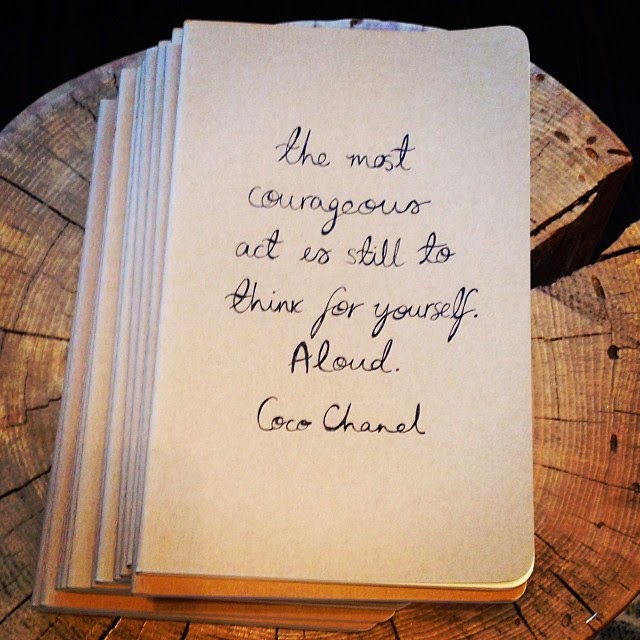 the most
courageous
act is still to
think for yourself.
Aloud.
Coco Chanel